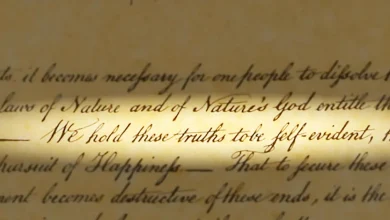 ts. it becomes necessary for one people to dissolve t
laws of Nature and of Nature's God entitle th
— We hold these truths to be self-evident, t
pursuit of Happiness. — That to secure these
ment becomes destructive of these ends, it is the